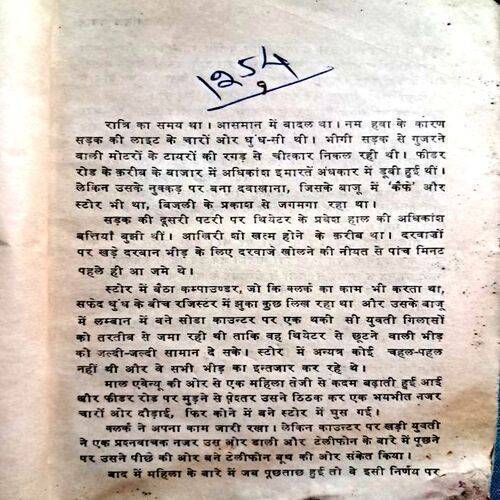 1254
रात्रि का समय था। आसमान में बादल था। नम हवा के कारण
सड़क की लाइट के चारों ओर धुंध-सी थी। भीगी सड़क से गुजरने
वाली मोटरों के टायरों की रगड़ से चीत्कार निकल रही थी। फीडर
रोड के क़रीब के बाजार में अधिकांश इमारतें अंधकार में डूबी हुई थीं।
लेकिन उसके नुक्कड़ पर बना दवाखाना, जिसके बाजू में 'कैफे' और
स्टोर भी था, बिजली के प्रकाश से जगमगा रहा था।
सड़क की दूसरी पटरी पर थियेटर के प्रवेश हाल की अधिकांश
बत्तियाँ बुझी थीं। आखिरी शो खत्म होने के क़रीब था। दरवाजों
पर खड़े दरबान भीड़ के लिए दरवाजे खोलने की नीयत से पांच मिनट
पहले ही आ जमे थे।
स्टोर में बैठा कम्पाउण्डर, जो कि क्लर्क का काम भी करता था,
सफेद धुंध के बीच रजिस्टर में झुका कुछ लिख रहा था और उसके बाजू
में लम्बान में बने सोडा काउन्टर पर एक थकी सी युवती गिलासों
को तरतीब से जमा रही थी ताकि वह थियेटर से छूटने वाली भीड़
को जल्दी-जल्दी सामान दे सके। स्टोर में अन्यत्र कोई चहल-पहल
नहीं थी और वे सभी भीड़ का इन्तजार कर रहे थे।
माल एवेन्यू की ओर से एक महिला तेजी से कदम बढ़ाती हुई आई
और फीडर रोड पर मुड़ने से पेश्तर उसने ठिठक कर एक भयभीत नजर
चारों ओर दौड़ाई, फिर कोने में बने स्टोर में घुस गई।
क्लर्क ने अपना काम जारी रखा। लेकिन काउन्टर पर खड़ी युवती
ने एक प्रश्नवाचक नजर उस ओर डाली और टेलीफोन के बारे में पूछने
पर उसने पीछे की ओर बने टेलीफोन बूथ की ओर संकेत किया।
बाद में महिला के बारे में जब पूछताछ हुई तो वे इसी निर्णय पर